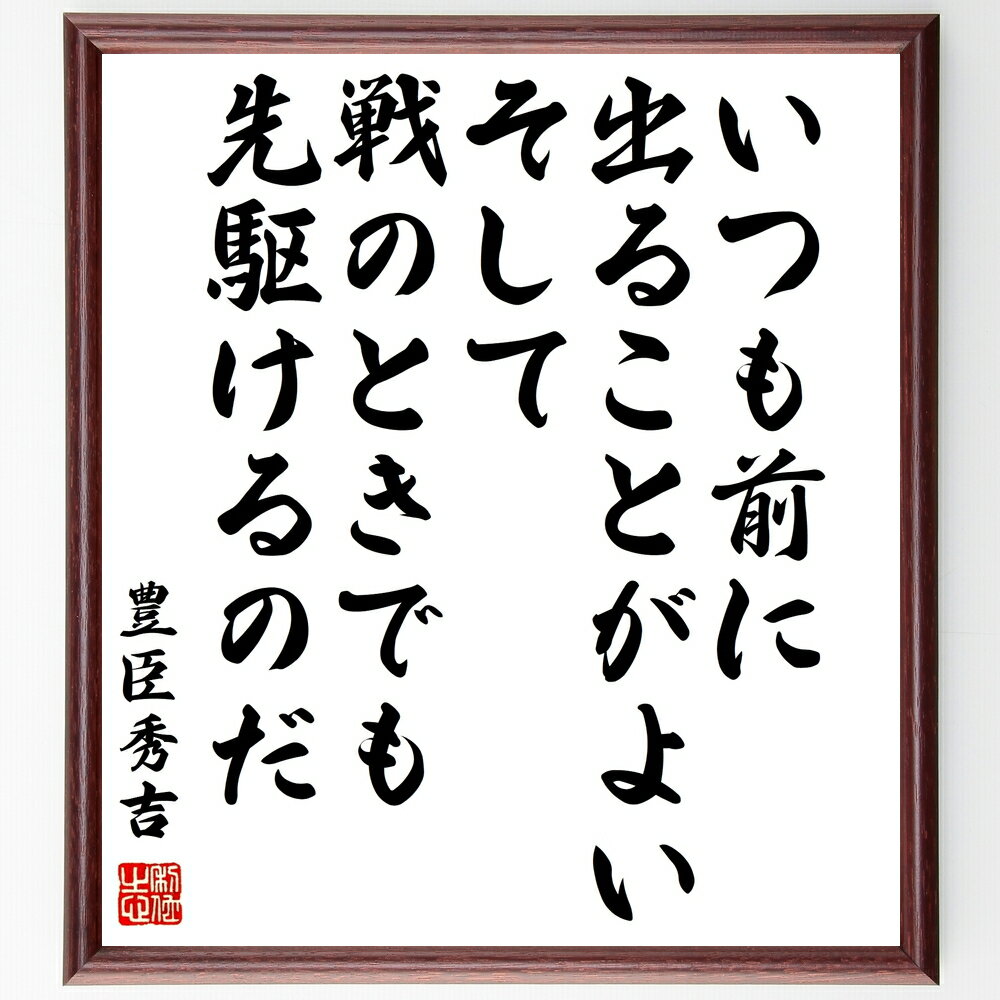 いつも前に
出ることがよい
そして
戦のときでも
先駆けるのだ
豊臣秀吉